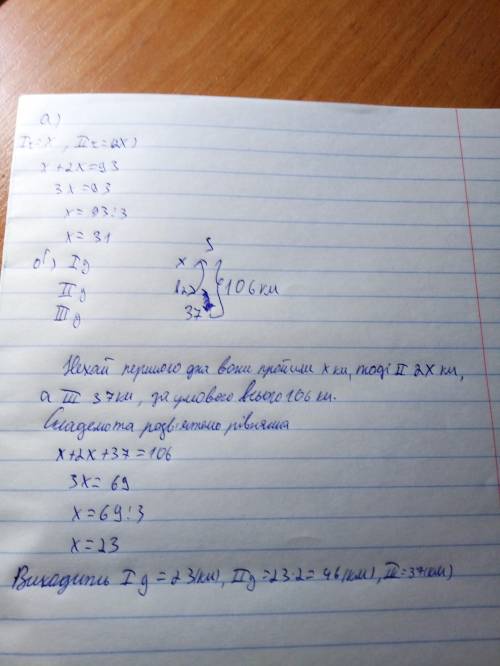 а)
Iт=x, IIт=2x)
x+2x=93
3x=93
x=93:3
x=31
S
б) I g x
II g 106км
III g 37
Нехай першого дня вони пройшли x км, тоді II 2x км,
а III 37км, за умовою всього 106 км.
Складемо та розв'яжемо рівняння
x+2x+37=106
3x=69
x=69:3
x=23
Виходить I g =23(км), II g =23·2=46(км), III=37(км)